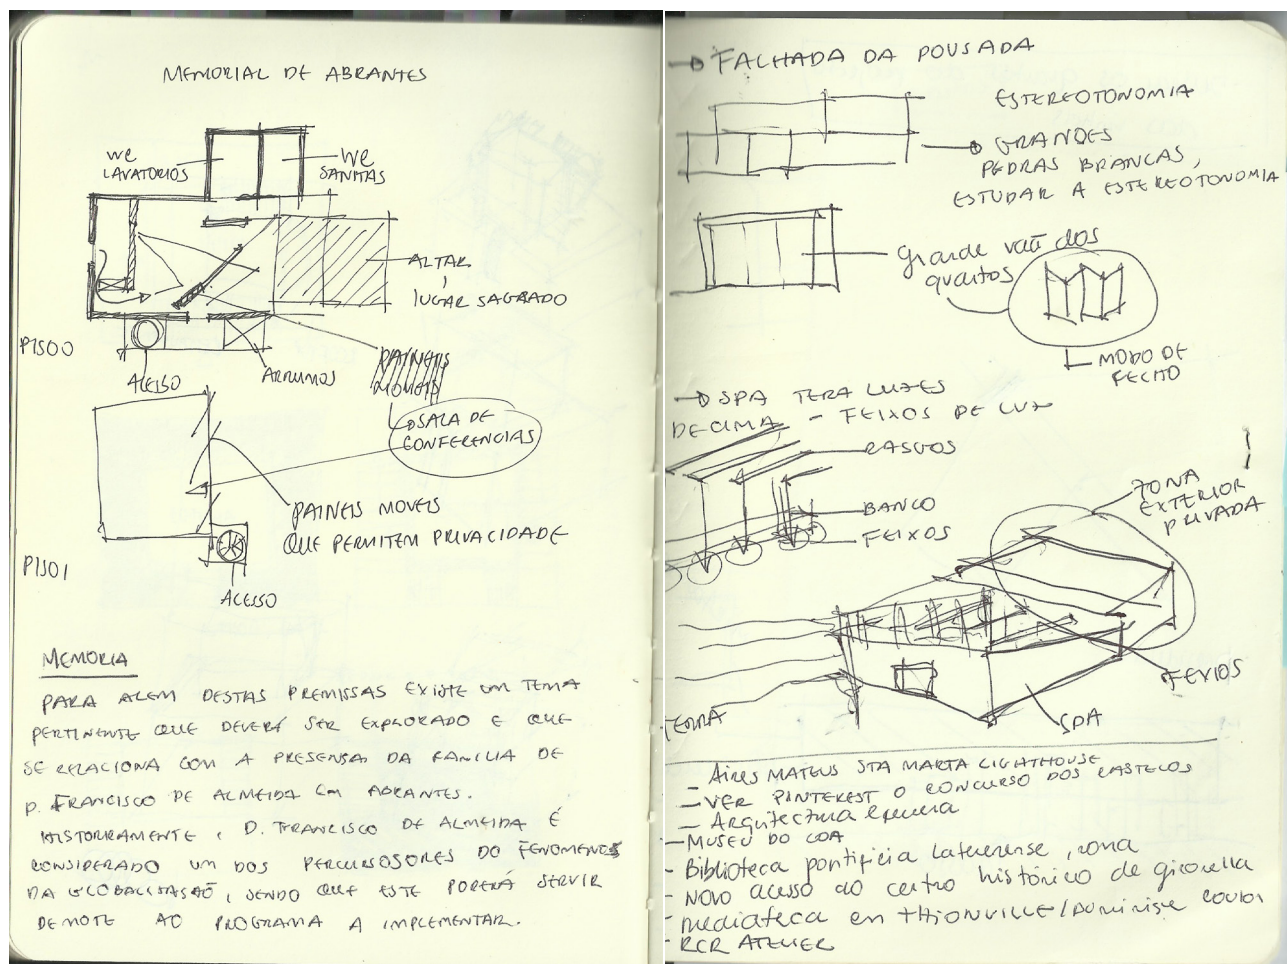 MEMORIAL DE ABRANTES
WC
LAVATORIOS
WC
SANITAS
ALTAR
LUGAR SAGRADO
PISO0
ACESSO
ARRUMOS
PAINEIS
MOVEIS
SALA DE
CONFERENCIAS
PAINEIS MOVEIS
QUE PERMITEM PRIVACIDADE
PISO1
ACESSO
MEMORIA
PARA ALEM DESTAS PREMISSAS EXISTE UM TEMA
PERTINENTE QUE DEVERÁ SER EXPLORADO E QUE
SE RELACIONA COM A PRESENSA DA FAMILIA DE
D. FRANCISCO DE ALMEIDA EM ABRANTES.
HISTORICAMENTE, D. FRANCISCO DE ALMEIDA É
CONSIDERADO UM DOS PERCURSOSORES DO FENOMENOS
DA GLOBALISASAÕ, SENDO QUE ESTE PODERÁ SERVIR
DE MOTE AO PROGRAMA A IMPLEMENTAR.
→ FALCHADA DA POUSADA
ESTEREOTONOMIA
GRANDES
PEDRAS BRANCAS,
ESTUDAR A ESTEREOTONOMIA
Grande vaõ dos
quartos
MODO DE
FECHO
→ SPA TERA LUZES
DE CIMA - FEIXOS DE LUZ
RASGOS
BANCO
FEIXOS
ZONA
EXTERIOR
PRIVADA
FEXIOS
SPA
TERRA
- AIRES MATEUS STA MARTA LIGHTHOUSE
- VER PINTEREST O CONCURSO DOS CASTELOS
- Arquitectura efemera
- MUSEU DO COA
- Biblioteca pontificia Laterense, roma
- Novo acesso ao centro histórico de gironella
- mediateca en THIONVILLE/Dominique Coulon
- RCR ATELIER